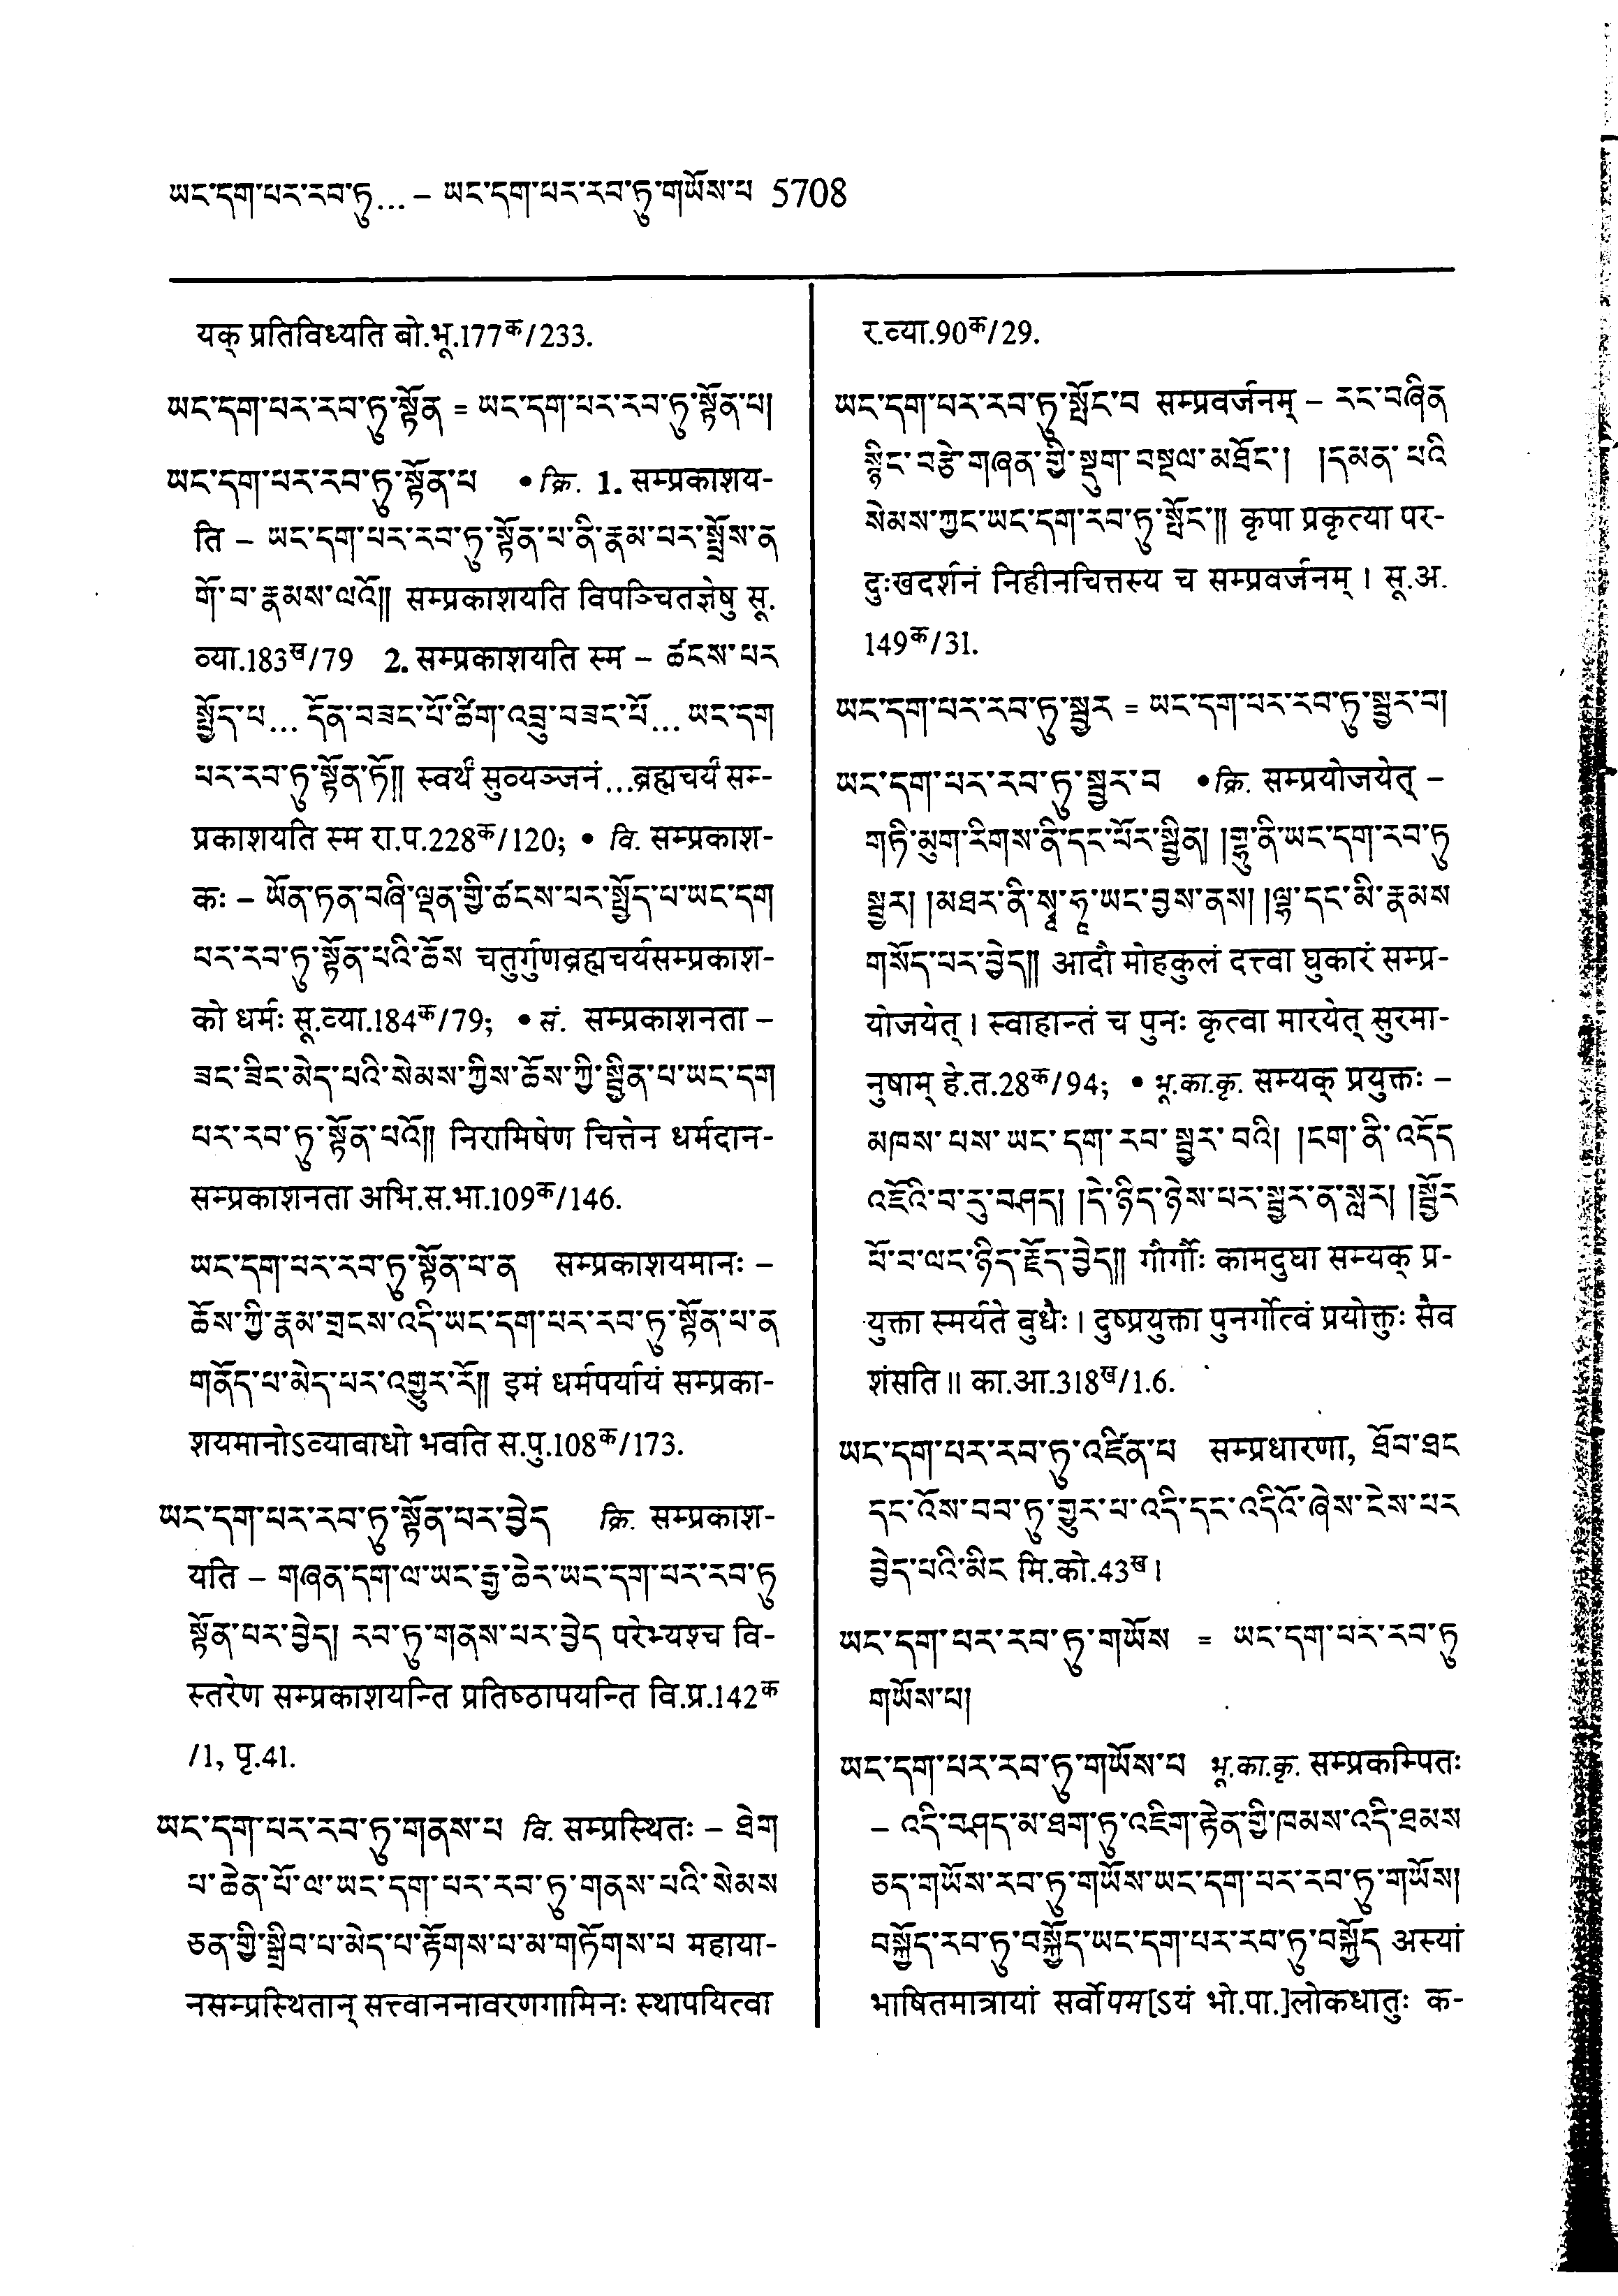 ཡང་དག་པར་རབ་ཏུ... – ཡང་དག་པར་རབ་ཏུ་གཡོས་པ 5708
यक् प्रतिविध्यति बो.भू.177क/233.
ཡང་དག་པར་རབ་ཏུ་སྟོན = ཡང་དག་པར་རབ་ཏུ་སྟོན་པ།
ཡང་དག་པར་རབ་ཏུ་སྟོན་པ • क्रि. 1. सम्प्रकाशय-
ति – ཡང་དག་པར་རབ་ཏུ་སྟོན་པ་ནི་རྣམ་པར་སྤྲོས་ན
གོ་བ་རྣམས་ལའོ།། सम्प्रकाशयति विपञ्चितज्ञेषु सू.
व्या.183ख/79 2. सम्प्रकाशयति स्म – ཚངས་པར
སྤྱོད་པ... དོན་བཟང་པོ་ཚིག་འབྲུ་བཟང་པོ... ཡང་དག
པར་རབ་ཏུ་སྟོན་ཏོ།། स्वर्थं सुव्यञ्जनं...ब्रह्मचर्यं सम्-
प्रकाशयति स्म रा.प.228क/120; • वि. सम्प्रकाश-
कः – ཡོན་ཏན་བཞི་ལྡན་གྱི་ཚངས་པར་སྤྱོད་པ་ཡང་དག
པར་རབ་ཏུ་སྟོན་པའི་ཆོས चतुर्गुणब्रह्मचर्यसम्प्रकाश-
को धर्मः सू.व्या.184क/79; • सं. सम्प्रकाशनता –
ཟང་ཟིང་མེད་པའི་སེམས་ཀྱིས་ཆོས་ཀྱི་སྦྱིན་པ་ཡང་དག
པར་རབ་ཏུ་སྟོན་པའོ།། निरामिषेण चित्तेन धर्मदान-
सम्प्रकाशनता अभि.स.भा.109क/146.
ཡང་དག་པར་རབ་ཏུ་སྟོན་པ་ན सम्प्रकाशयमानः –
ཆོས་ཀྱི་རྣམ་གྲངས་འདི་ཡང་དག་པར་རབ་ཏུ་སྟོན་པ་ན
གནོད་པ་མེད་པར་འགྱུར་རོ།། इमं धर्मपर्यायं सम्प्रका-
शयमानोऽव्याबाधो भवति स.पु.108क/173.
ཡང་དག་པར་རབ་ཏུ་སྟོན་པར་བྱེད क्रि. सम्प्रकाश-
यति – གཞན་དག་ལ་ཡང་རྒྱ་ཆེར་ཡང་དག་པར་རབ་ཏུ
སྟོན་པར་བྱེད། རབ་ཏུ་གནས་པར་བྱེད परेभ्यश्च वि-
स्तरेण सम्प्रकाशयन्ति प्रतिष्ठापयन्ति वि.प्र.142क
/1, पृ.41.
ཡང་དག་པར་རབ་ཏུ་གནས་པ वि. सम्प्रस्थितः – ཐེག
པ་ཆེན་པོ་ལ་ཡང་དག་པར་རབ་ཏུ་གནས་པའི་སེམས
ཅན་གྱི་སྒྲིབ་པ་མེད་པ་རྟོགས་པ་མ་གཏོགས་པ महाया-
नसम्प्रस्थितान् सत्त्वाननावरणगामिनः स्थापयित्वा
र.व्या.90क/29.
ཡང་དག་པར་རབ་ཏུ་སྤོང་བ सम्प्रवर्जनम् – རང་བཞིན
སྙིང་བརྩེ་གཞན་གྱི་སྡུག་བསྔལ་མཐོང་། །དམན་པའི
སེམས་ཀྱང་ཡང་དག་རབ་ཏུ་སྤོང་།། कृपा प्रकृत्या पर-
दुःखदर्शनं निहीनचित्तस्य च सम्प्रवर्जनम् । सू.अ.
149क/31.
ཡང་དག་པར་རབ་ཏུ་སྦྱར = ཡང་དག་པར་རབ་ཏུ་སྦྱར་བ།
ཡང་དག་པར་རབ་ཏུ་སྦྱར་བ • क्रि. सम्प्रयोजयेत् –
གཏི་མུག་རིགས་ནི་དང་པོར་སྦྱིན། །གྷུ་ནི་ཡང་དག་རབ་ཏུ
སྦྱར། །མཐར་ནི་སྭཱ་ཧཱ་ཡང་བྱས་ནས། །ལྷ་དང་མི་རྣམས
གསོད་པར་བྱེད།། आदौ मोहकुलं दत्त्वा घुकारं सम्प्र-
योजयेत् । स्वाहान्तं च पुनः कृत्वा मारयेत् सुरमा-
नुषाम् हे.त.28क/94; • भू.का.कृ. सम्यक् प्रयुक्तः –
མཁས་པས་ཡང་དག་རབ་སྦྱར་བའི། །ངག་ནི་འདོད
འཇོའི་བ་རུ་བཤད། །དེ་ཉིད་ཉེས་པར་སྦྱར་ན་སླར། །སྦྱོར
པོ་བ་ལང་ཉིད་རྗོད་བྱེད།། गौर्गौः कामदुघा सम्यक् प्र-
युक्ता स्मर्यते बुधैः । दुष्प्रयुक्ता पुनर्गोत्वं प्रयोक्तुः सैव
शंसति ॥ का.आ.318ख/1.6.
ཡང་དག་པར་རབ་ཏུ་འཛིན་པ सम्प्रधारणा, ཐོབ་ཐང
དང་འོས་བབ་ཏུ་གྱུར་པ་འདི་དང་འདིའོ་ཞེས་ངེས་པར
བྱེད་པའི་མིང मि.को.43ख ।
ཡང་དག་པར་རབ་ཏུ་གཡོས = ཡང་དག་པར་རབ་ཏུ
གཡོས་པ།
ཡང་དག་པར་རབ་ཏུ་གཡོས་པ भू.का.कृ. सम्प्रकम्पितः
– འདི་བཤད་མ་ཐག་ཏུ་འཇིག་རྟེན་གྱི་ཁམས་འདི་ཐམས
ཅད་གཡོས་རབ་ཏུ་གཡོས་ཡང་དག་པར་རབ་ཏུ་གཡོས།
བསྐྱོད་རབ་ཏུ་བསྐྱོད་ཡང་དག་པར་རབ་ཏུ་བསྐྱོད अस्यां
भाषितमात्रायां सर्वोपम[ऽयं भो.पा.]लोकधातुः क-